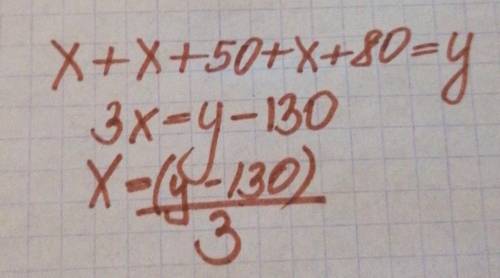 x+x+50+x+80=y
3x=y-130
x=(y-130)/3